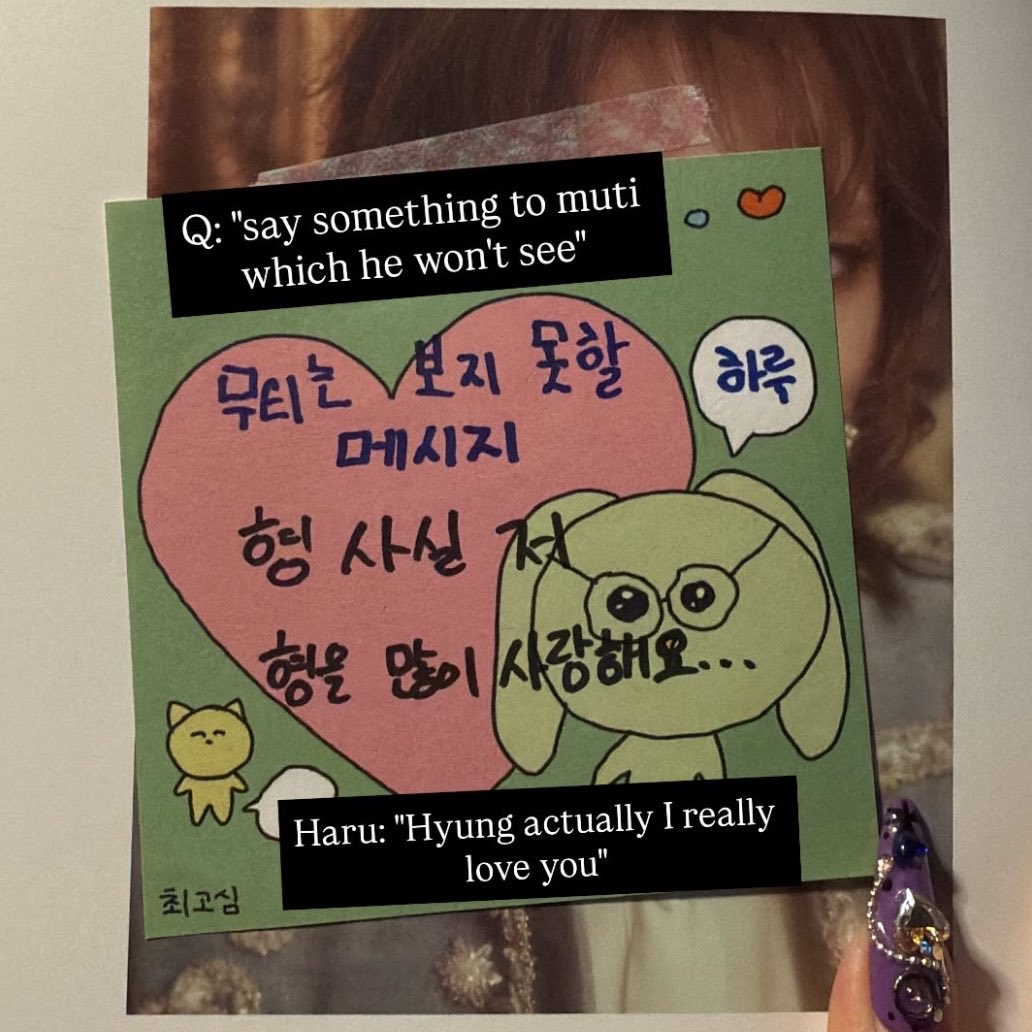 Q: "say something to muti
which he won't see"
무티는 보지 못할
메시지
하루
형 사실 저
형을 많이 사랑해요...
Haru: "Hyung actually I really
love you"
최고심